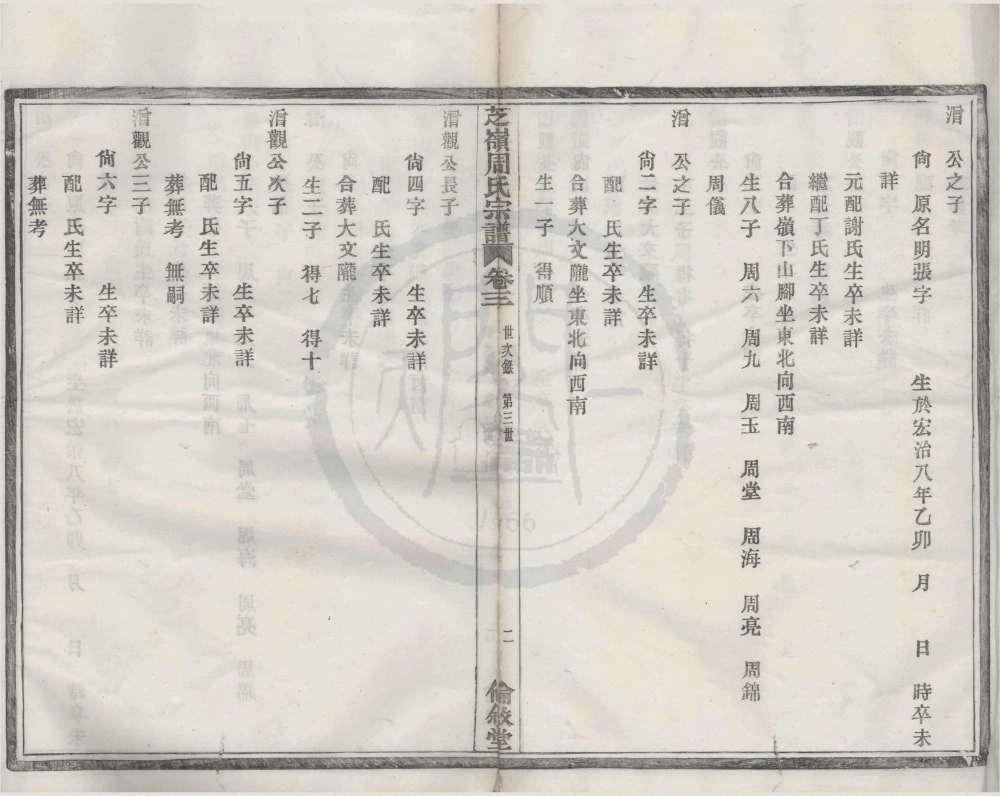 溍 公之子
尙 原名明張字 生於宏治八年乙卯 月 日 時卒未
詳
元配謝氏生卒未詳
繼配丁氏生卒未詳
合葬嶺下山腳坐東北向西南
生八子 周六 周九 周玉 周堂 周海 周亮 周錦
周儀
溍 公之子
尙二字 生卒未詳
配 氏生卒未詳
合葬大文隴坐東北向西南
生一子 得順
芝嶺周氏宗譜 卷三 世次錄 第三世 二 倫敘堂
溍觀公長子
尙四字 生卒未詳
配 氏生卒未詳
合葬大文隴
生二子 得七 得十
溍觀公次子
尙五字 生卒未詳
配 氏生卒未詳
葬無考 無嗣
溍觀公三子
尙六字 生卒未詳
配 氏生卒未詳
葬無考